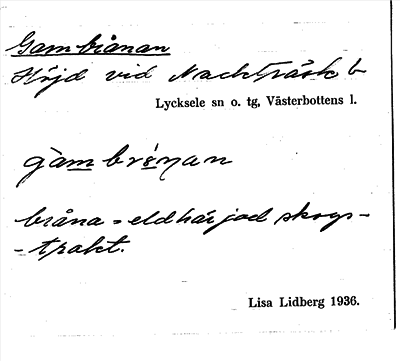 Gambrånan
Höjd vid Nackträsk b
Lycksele sn o. tg, Västerbottens l.
gàm brånan
bråna = eldhärjad skogs-
-trakt.
Lisa Lidberg 1936.